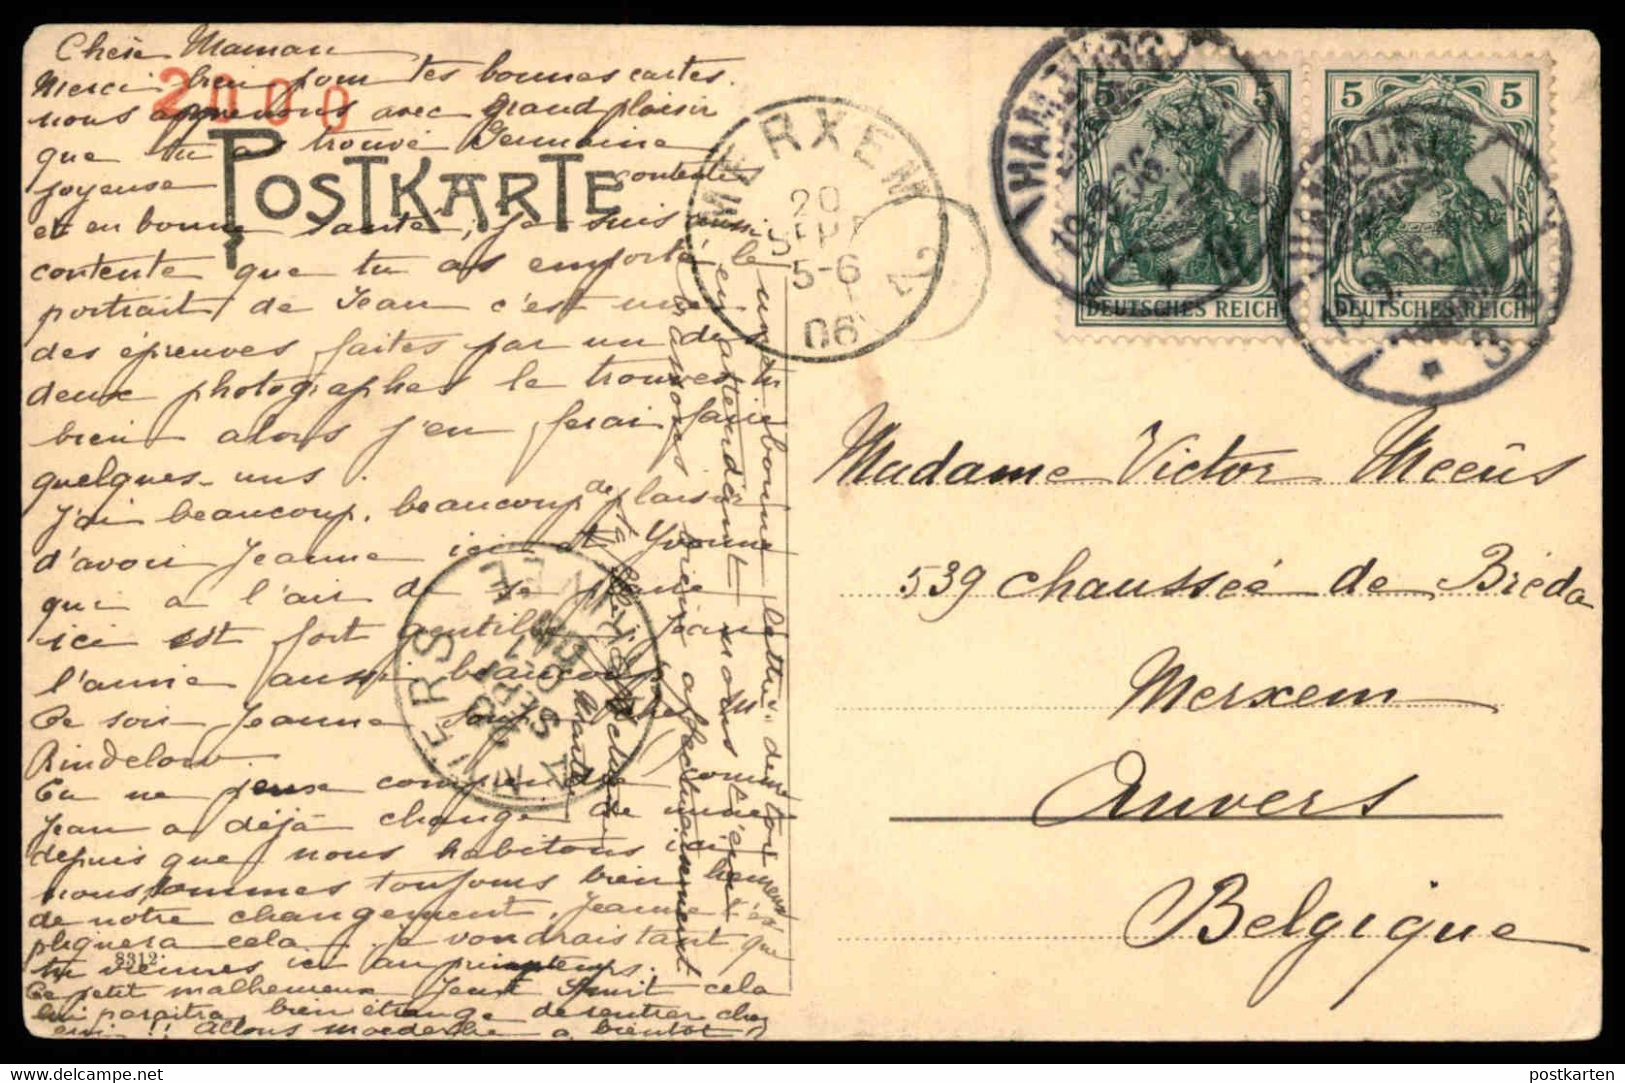 Chère Maman
Merci bien pour tes bonnes cartes.
nous apprenons avec grand plaisir
que tu as trouvé Germaine
joyeuse contente
et en bonne santé, je suis aussi
contente que tu as emporté le
portrait de Jean c'est une
des épreuves faites par un des
deux photographes le trouves tu
bien alors j'en ferai faire
quelques-uns.
J'ai beaucoup, beaucoup de plaisir
d'avoir Jeanne ici et Yvonne
qui a l'air de se plaire
ici est fort gentille, Jean
l'aime aussi beaucoup
Ce soir Jeanne
Rindelow.
Tu ne peux comprendre comme
Jean a déjà changé de mine
depuis que nous habitons ici
nous sommes toujours bien heureux
de notre changement, Jeanne t'ex
pliquera cela. Je voudrais tant que
tu viennes ici au printemps.
Ce petit malheureux cela
lui paraitra bien étrange de rentrer chez
lui !! Allons à bientôt
une bonne lettre de toi
en attendant nous t'
embrassons bien affectueusement
ta
2000
POSTKARTE
8312
MERXEM
20
SEPT
5-6
06
2
ANVERS
HAMBURG
19.9.06.
* 1
HAMBURG
19.9.06.
* 1
5 5
DEUTSCHES REICH
5 5
DEUTSCHES REICH
Madame Victor Meeûs
539 chaussée de Bréda
Merxem
Anvers
Belgique
www.delcampe.net
postkarten